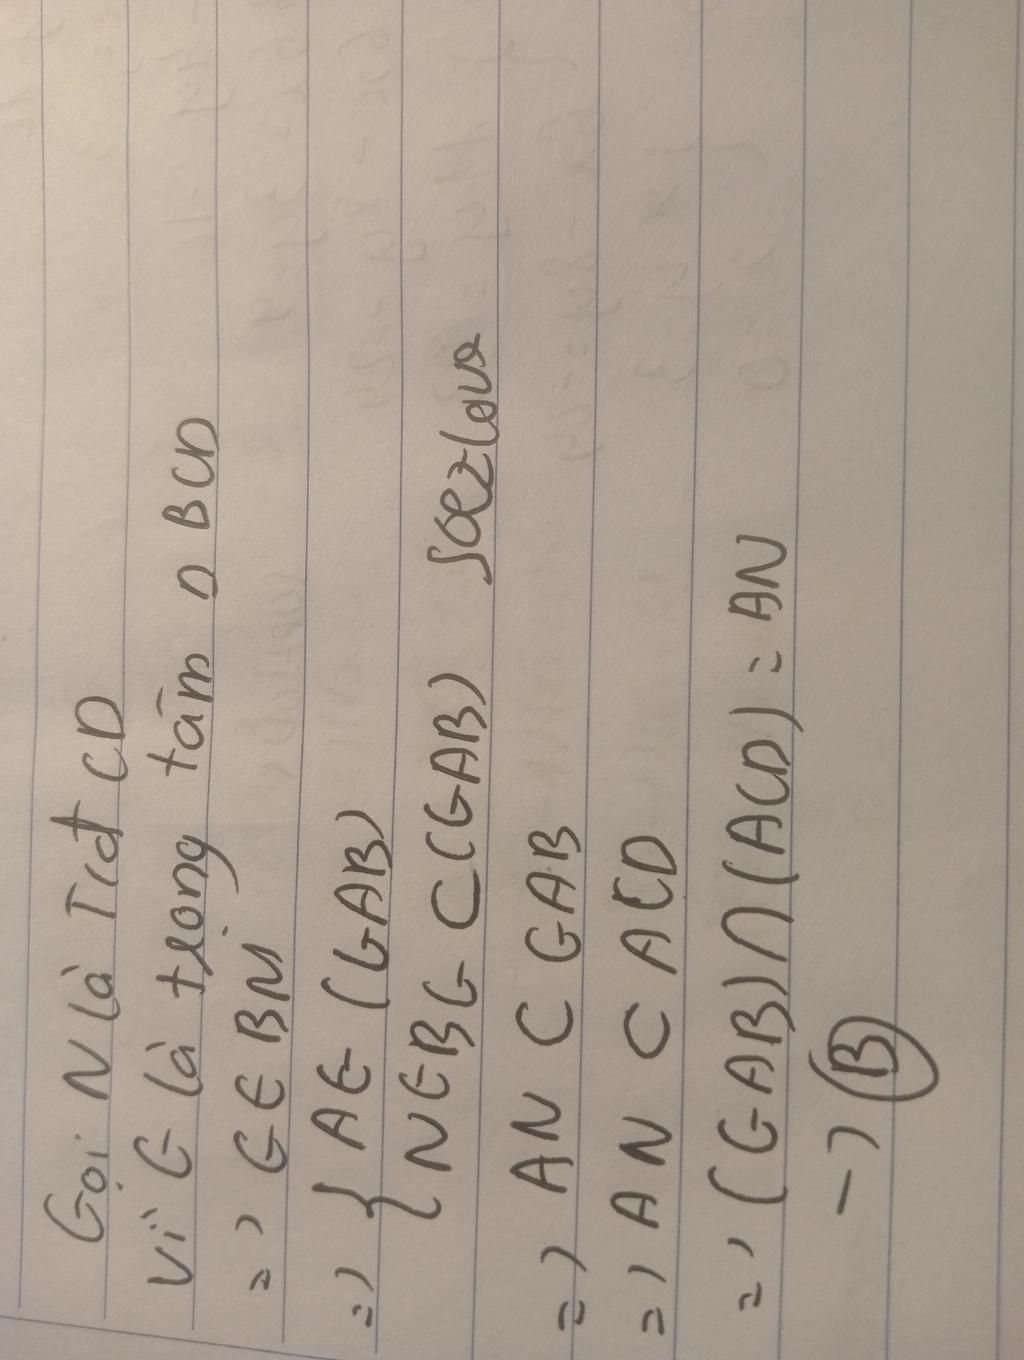 Gọi N là Trđ CD
Vì G là trọng tâm Δ BCD
=> G ∈ BN
=> { A ∈ (GAB)
N ∈ BG ⊂ (GAB)
=> AN ⊂ GAB
=> AN ⊂ ACD
=> (GAB) ∩ (ACD) = AN
-> B